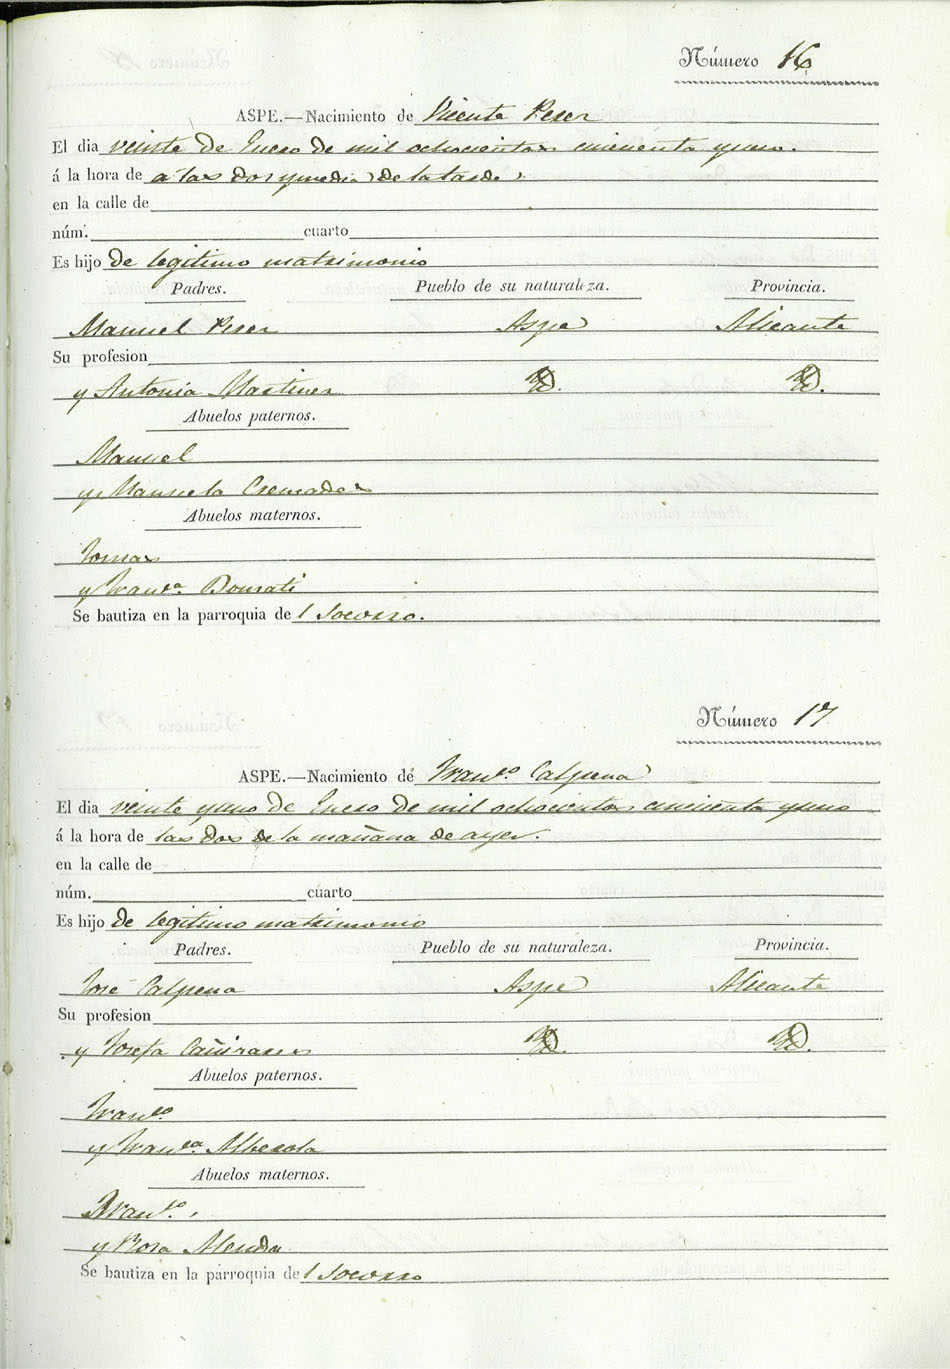 Número 16
ASPE.—Nacimiento de Vicente Perez
El dia veinte de Enero de mil ochocientos cincuenta y uno.
á la hora de a las dos y media de la tarde
en la calle de
núm. cuarto
Es hijo de legitimo matrimonio
Padres. Pueblo de su naturaleza. Provincia.
Manuel Perez Aspe Alicante
Su profesion
y Antonia Martinez
Abuelos paternos.
Manuel
y Manuela Cremades
Abuelos maternos.
Tomas
y Fran.ca
Se bautiza en la parroquia de l Socorro.
Número 17
ASPE.—Nacimiento de Fran.co Calpena
El dia veinte y uno de Enero de mil ochocientos cincuenta y uno
á la hora de las dos de la mañana de ayer.
en la calle de
núm. cuarto
Es hijo de legitimo matrimonio
Padres. Pueblo de su naturaleza. Provincia.
José Calpena Aspe Alicante
Su profesion
y Josefa Cañizares
Abuelos paternos.
Fran.co
y Fran.ca Alberola
Abuelos maternos.
Fran.co
y Rosa
Se bautiza en la parroquia de l Socorro